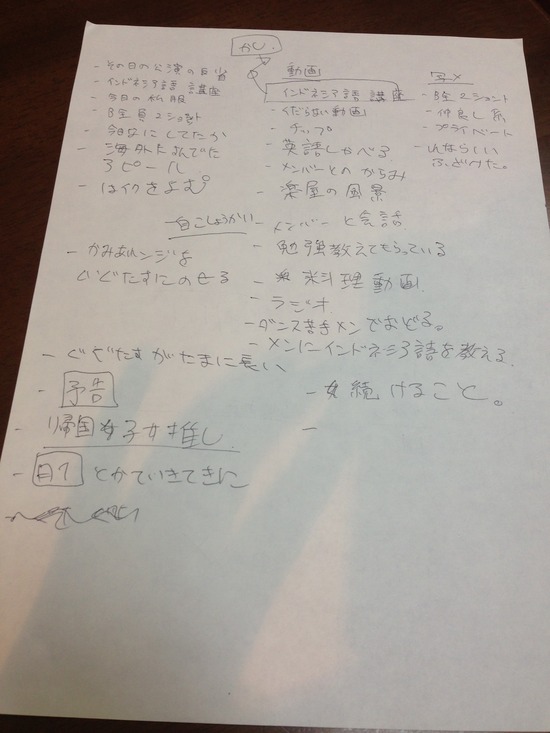 かし.
- その日の公演の反省
- インドネシア語 講座
- 今日の私服
- B全員2ショット
- 今日なにしてたか
- 海外に
アピール
- はイクをよむ。
動画
インドネシア語 講座
- くだらない動画
- チップ
- 英語しゃべる
- メンバーとの からみ
- 楽屋の風景
- メンバー と会話
- 勉強教えてもらっている
- 料理動画
- ラジオ
- ダンス苦手メンでおどる。
- メンにインドネシア語を教える
写メ
- B全2ショット
- 仲良し系
- プライベート
ふざけた。
自こしょうかい
- かみあれンジを
ぐぐたすにのせる
- ぐぐたすがたまに長い
- 予告
- 帰国子女推し
- 自1 とかていきてきに
- 続けること。
-